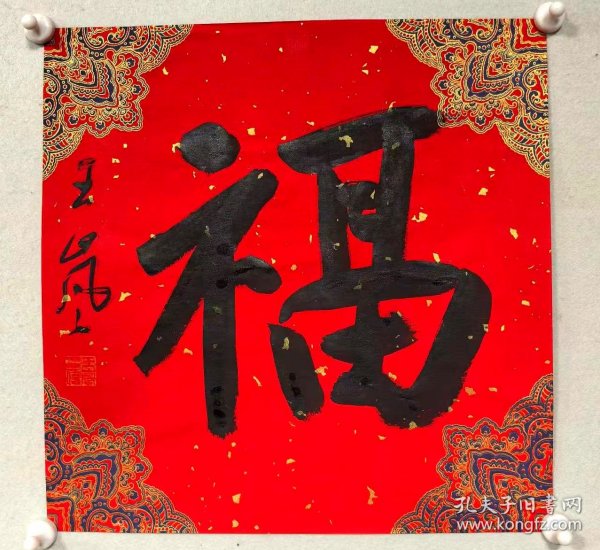 福
王岚
孔夫子旧书网
www.kongfz.com